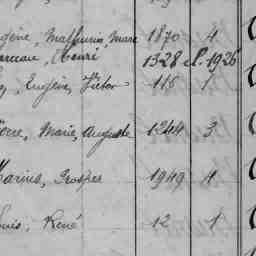 gène, Mathurin, Marc 1870 4
arceau, Henri 1328 cl. 1926
Eugène, Victor 116 1
Marie, Auguste 1244 3
Marius, Prosper 1949 4
ouis, René 12 1